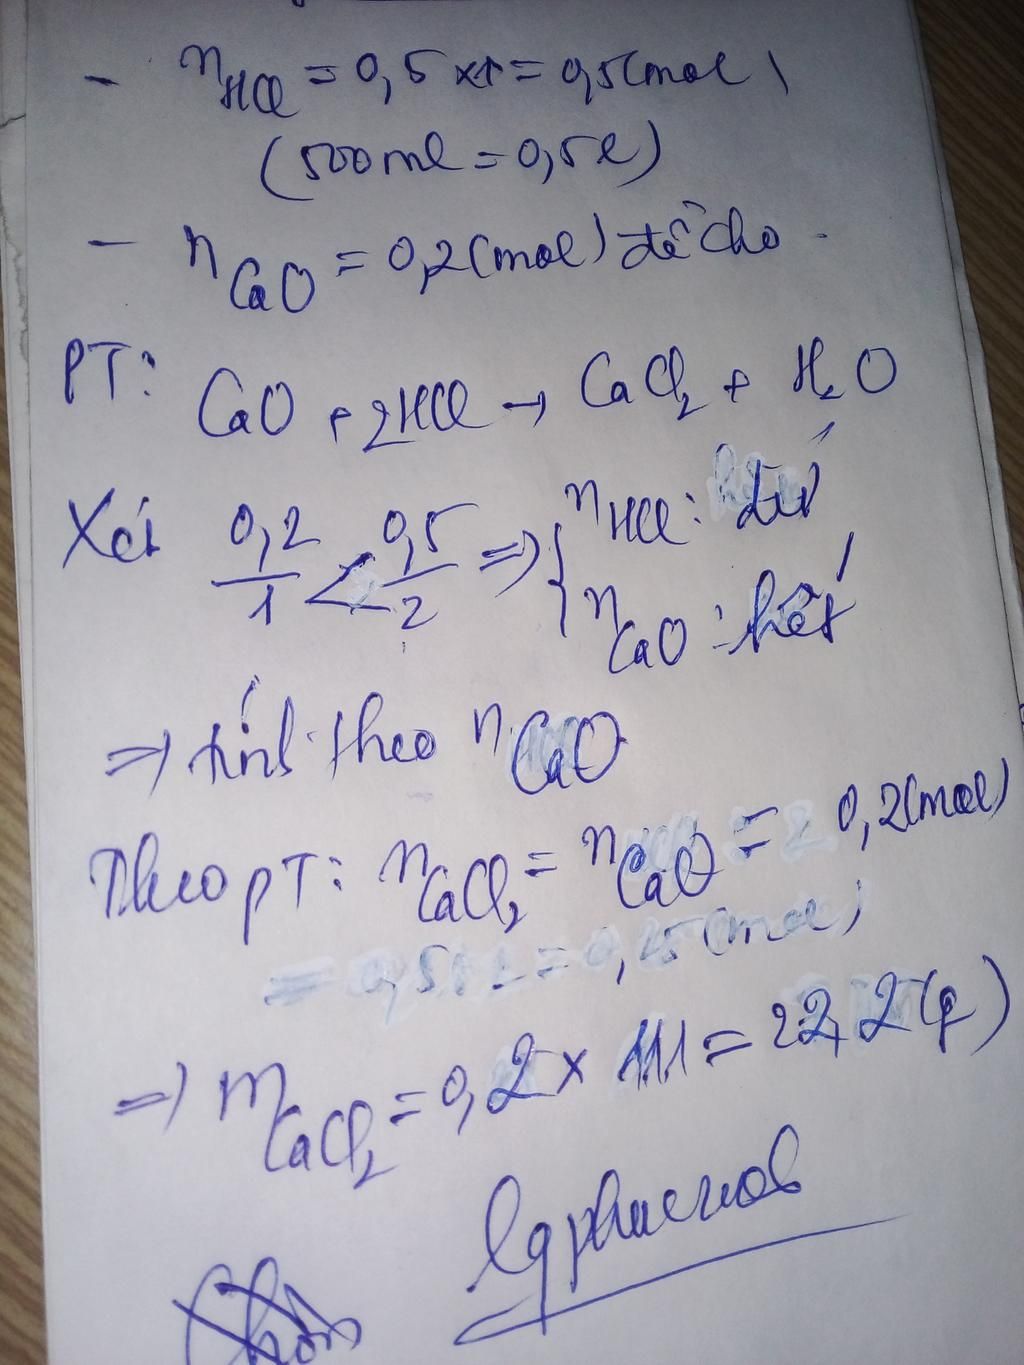 - nHCl = 0,5 x 1 = 0,5 (mol)
(500ml = 0,5l)
- nCaO = 0,2 (mol) đề cho.
PT: CaO + 2HCl → CaCl2 + H2O
Xét 0,2/1 < 0,5/2 => { nHCl: dư
nCaO: hết
=> tính theo nCaO
Theo pT: nCaCl2 = nCaO = 0,2 (mol)
= 0,5 = 0,25 (mol)
=> mCaCl2 = 0,2 x 111 = 22,2 (g)